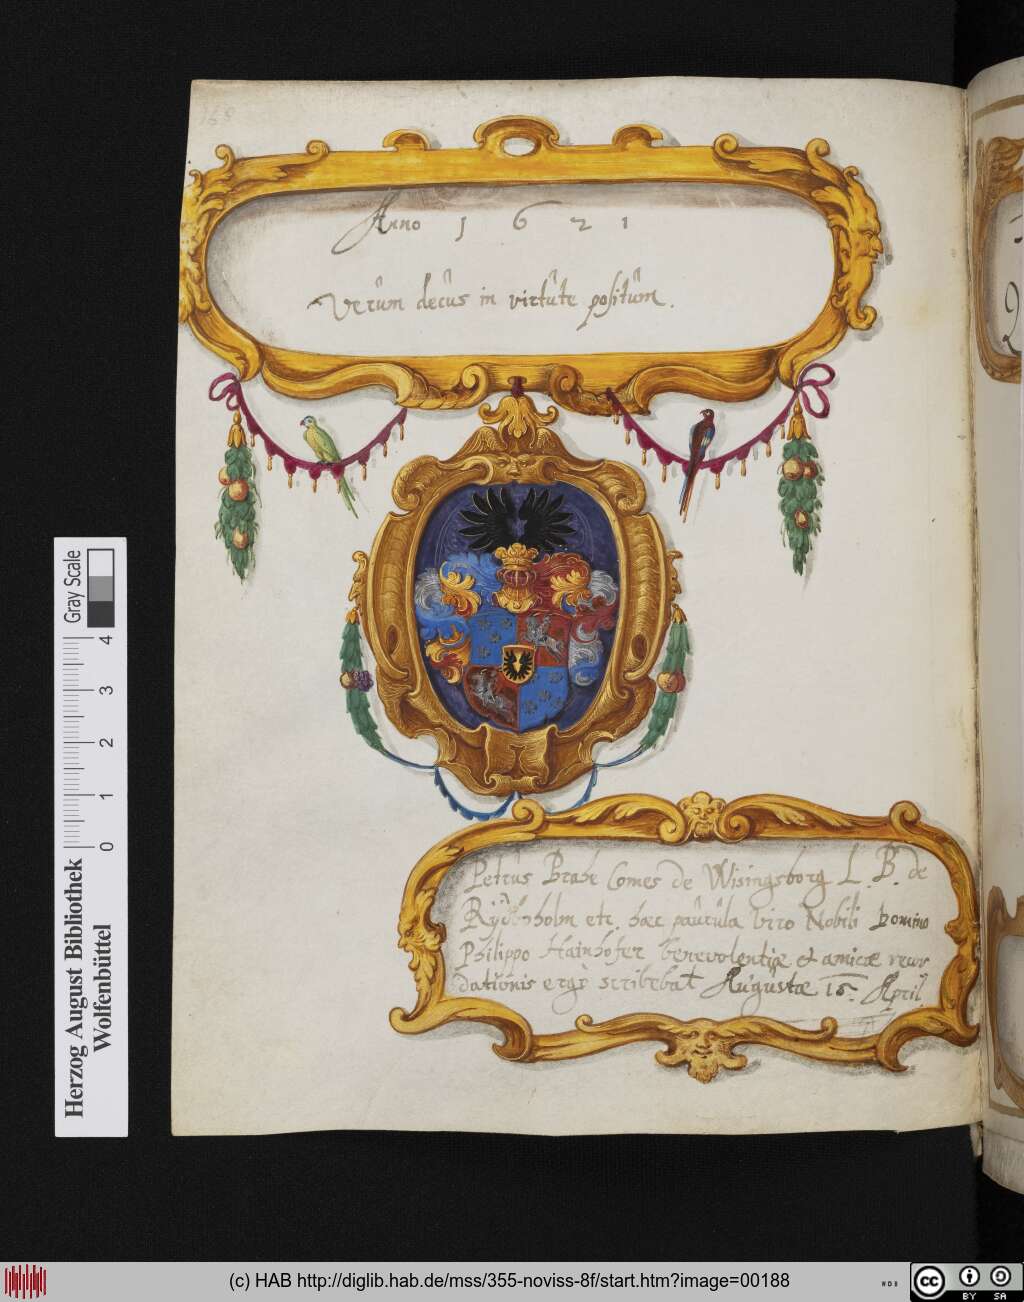 Anno 1621
Verum decus in virtute positum.
Petrus Brahe Comes de Wisingsborg L. B. de
Rydboholm etc. haec paucula viro Nobili Domino
Philippo Hainhofer benevolentiae et amicae recor
dationis ergo scribebat Augustae 15. April
Herzog August Bibliothek
Wolfenbüttel
Gray Scale
0 1 2 3 4
(c) HAB http://diglib.hab.de/mss/355-noviss-8f/start.htm?image=00188
WDB
cc
BY SA